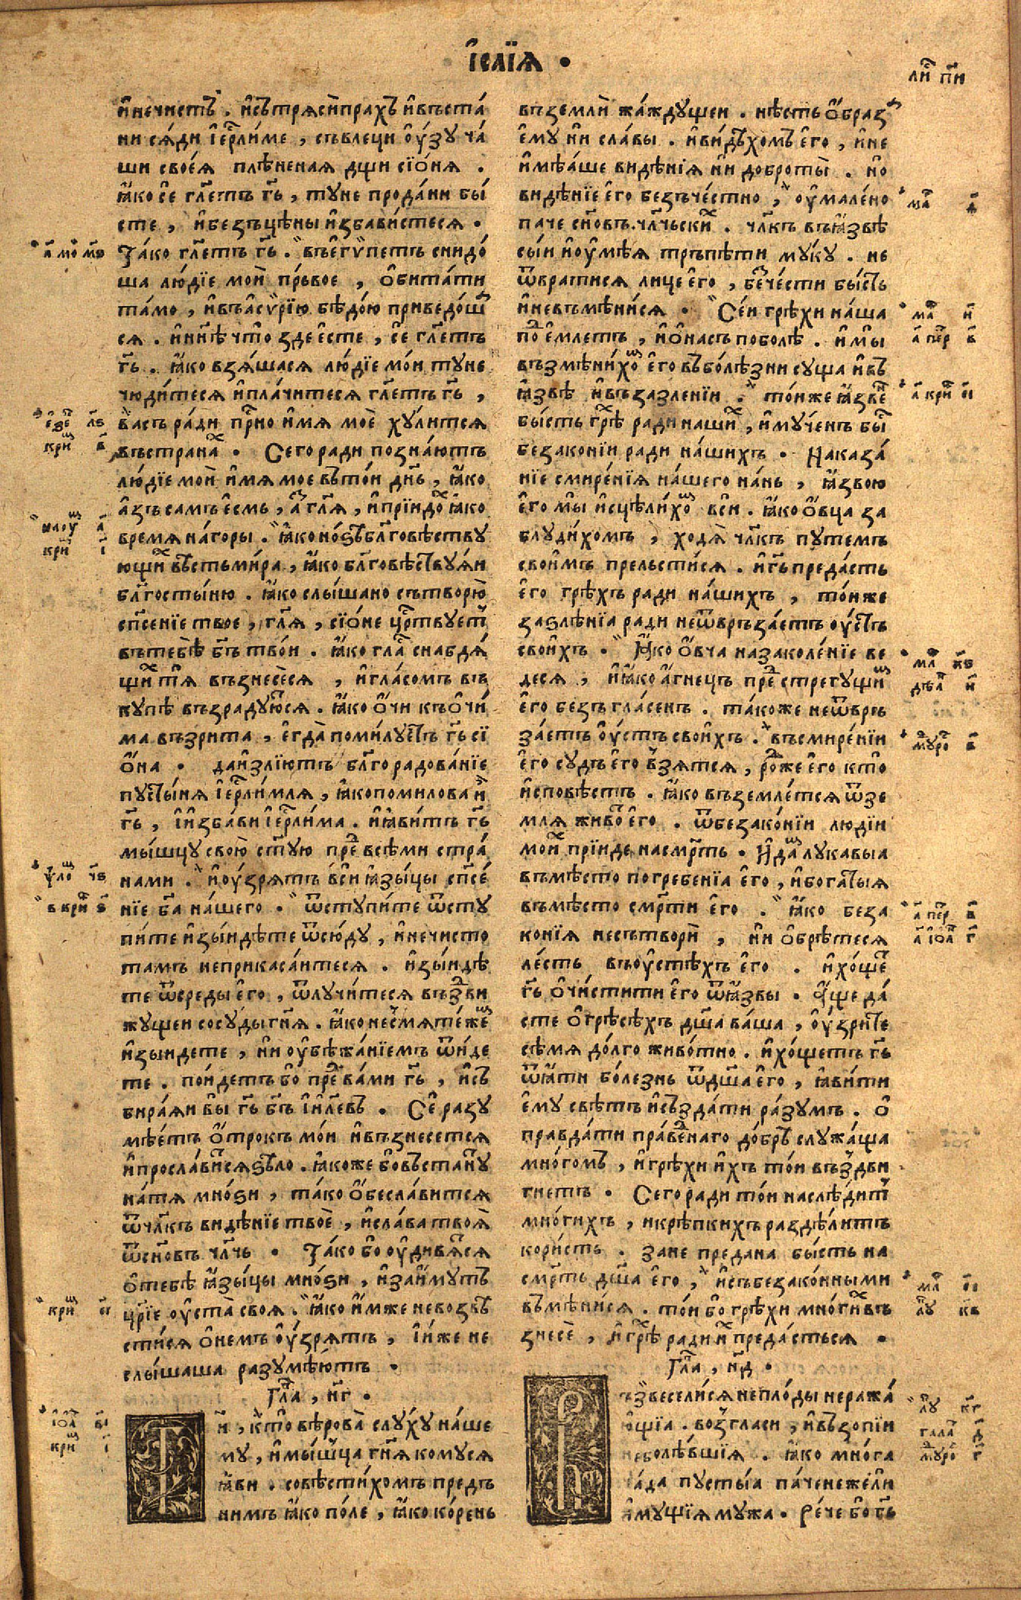 І҆саїѧ .
ли҃ п҃и
и҆нечистъ . и҆сътрѧсѝпрахъ и҆въста́
ни сѧ́ди і҆ерⷭ҇ли́ме , съвлеци о҆у́зу ча́
ши своеѧ̀ плѣ́неная дщи сїо́нѧ .
ꙗ҆́ко се гл҃етъ гь҃ , туне прода́ни бы́
сте , и҆безъцѣны и҆зба́вистеся .
Та́ко гл҃етъ гь҃ . въе҆гѵ́петъ снидо́
ша лю́дїе мой пръ́вое , о҆бита́ти
та́мо , и҆въа҆сѵрі́ю бѣдо́ю приведо́ш
ся . и҆нн҃ѣ что̀ зде е҆сте , се гл҃етъ
гь҃ . ꙗ҆́ко взѧ́шася лю́дїе мои́ туне
чюди́теся и҆пла́читеся гл҃етъ гь҃ ,
васъ ра́ди при́но и҆мя моѐ ху́лится
въстрана́х . Сего ра́ди позна́ютъ
лю́дїе мои́ и҆мя мое въто́и дн҃ь , ꙗ҆́ко
а҆́зъ самъ е҆смь , а҆́з гл҃я , и҆прїидо́х ꙗ҆́ко
время на́горы . ꙗ҆́ко но́ѕѣ бл҃говѣству
ющих въ́стьми́ра , ꙗ҆́ко бл҃говѣ́ствуяи
бл҃госты́ню . ꙗ҆́ко слы́шано сътворю̀
сп҃се́нїе твое , гл҃я , сїо́не црⷭ҇твует
въ тебѣ̀ бг҃ъ тво́и . ꙗ҆́ко гла́с снабдѧ́
щих тѧ възнесе́ся , и҆гла́сомъ въ
ку́пѣ възра́дуюся . ꙗ҆́ко о҆́чи къо҆чи́
ма възри́та , е҆гда̀ поми́луетъ гь҃ сї
о҆́на . даи҆злїю́тъ бл҃го ра́дова́нїе
пусты́ня і҆ерⷭ҇ли́мля , ꙗ҆́копоми́лова и҆х
гь҃ , и҆и҆зба́ви і҆ерⷭ҇ли́ма . и҆ꙗ҆ви́тъ гь҃
мы́шцу свою̀ ст҃у́ю предⷣ все́ми стра́
нами . и҆о҆у́зрятъ вси́ ꙗ҆зы́цы сп҃се́
нїе бг҃а на́шего . ѿступи́те ѿсту
пи́те и҆зы́идѣте ѿсю́ду , и҆нечисто
тамъ неприкаса́итеся . и҆зы́идѣ
те ѿсреды̀ е҆го , ѿлучи́теся въздви
жущеи сосу́ды гн҃я . ꙗ҆́ко несмяте́жем
и҆зы́идете , ни о҆убѣжа́нїемъ ѿи́де
те . по́идетъ бо предⷣ ва́ми гь҃ , и҆съ
бира́яи вы̀ гь҃ бг҃ъ і҆и҃левъ . Се ра́зу
мѣ́етъ о҆трокъ мо́и и҆възнесется
и҆просла́вится ѕѣло . ꙗ҆́коже бо въста́нꙋ
натя мно́ѕи , та́ко о҆бесла́вится
ѿчл҃къ видѣ́нїе твоѐ , и҆сла́ва твоя̀
ѿсн҃овъ чл҃чь . Та́ко бо о҆удивя́тся
о҆тебѣ̀ ꙗ҆зы́цы мно́ѕи , и҆заи́мутъ
цр҃їе о҆уста̀ своя . ꙗ҆́ко и҆́мже невозвѣ
сти́ся о҆немъ о҆у́зрятъ , и҆и́же не
слы́шаша разумѣ́ютъ .
Гла҃ , н҃г .
Ги҃ , кто̀ вѣ́рова слу́ху на́ше
му , и҆мы́шца гн҃я кому́ся
ꙗ҆ви . совѣсти́хомъ предъ
нимъ ꙗ҆́ко по́ле , ꙗ҆́ко ко́рень
въземли̏ жа́ждущеи . нѣ́сть о҆́браз
е҆му ни сла́вы . и҆ви́дѣхомъ е҆го , и҆не
и҆мѣ́аше видѣ́нїя ни доброты̀ . но
видѣ́нїе е҆го безъче́стно , о҆умале́но
паче сн҃овъ чл҃чьских . чл҃къ въꙗ҆́звѣ
сы́и и҆о҆умѣ́я тръпѣ́ти му́ку . не
ѿврати́ся лице е҆го , бе́чести бы́сть
и҆невъмѣни́ся . Се́и грѣхи̏ на́ша
по́дⷣе́млетъ , и҆о҆на́съ поболѣ̀ . и҆мы̀
възмѣни́хом е҆го въболѣ́зни су́ща и҆въ
ꙗ҆́звѣ и҆въазлобле́нїи . то́иже ꙗ҆́зве
бы́сть грѣх ра́ди на́ших , и҆му́ченъ бы
беззако́нїи ра́ди на́шихъ . Наказа́
нїе смире́нїя на́шего на́нь , ꙗ҆́звою
е҆го мы и҆сцели́хом вси . ꙗ҆́ко о҆́вца за
блуди́хомъ , ходя̀ чл҃къ путемъ
свои́мъ прельсти́ся . и҆гь҃ преда́сть
е҆го грѣ́хъ ра́ди на́шихъ , то́иже
заѕле́нїа ра́ди неѿвръза́етъ о҆у́стъ
свои́хъ . Ꙗ҆́ко о҆́вча назаколе́нїе ве
де́ся , и҆ꙗ҆́ко а҆́гнецъ предⷣ стрегущим
е҆го безъ гла́сенъ . та́коже неѿвръ
за́етъ о҆у́стъ свои́хъ . въсмире́нїи
е҆го судъ е҆го взя́тся , ро́дже е҆го кто̀
и҆сповѣ́сть . ꙗ҆́ко възе́млется ѿзе
мля живо́т е҆го . ѿбезако́нїи людїи
мои́х прїиде насмр҃ть . И҆да́м лука́выа
въмѣ́сто погребе́нїа е҆го , и҆бога́тыя
въмѣсто смр҃ти е҆го . ꙗ҆́ко беза
ко́нїя несътвори̏ , ни о҆брѣ́теся
ле́сть въо҆устѣ́хъ е҆го . и҆хо́щет
гь҃ о҆чи́стити е҆го ѿꙗ҆́звы . А҆́ще да́
сте о҆грѣсѣ́хъ дш҃а ва́ша , о҆у́зрите
сѣ́мя до́лго живо́тно . и҆хо́щетъ гь҃
ѿꙗ҆́ти бо́лезнь ѿдш҃а е҆го , ꙗ҆ви́ти
е҆му свѣ́тъ и҆създа́ти ра́зумъ . о҆
правда́ти пра́веднаго до́брѣ служа́ща
мно́гомъ , и҆грѣхи и҆хъ то́и въздви
гнетъ . Сего ра́ди то́и наслѣ́дит
мно́гихъ , и҆крѣ́пкихъ раздѣ́литъ
кори́сть . зане предана бы́сть на
смр҃ть дш҃а е҆го , и҆събезако́нными
въмѣни́ся . то́и бо грѣхи мно́гих въ
знесе̏ , и҆грѣх ра́ди и҆х преда́стъся .
Гла҃ , н҃д .
Възвесели́ся непло́ды неража́
ющїа . возгласи , и҆възопїи
неболѣ́вшїя . ꙗ҆́ко мно́га
ча́да пусты́а па́ченежели
и҆му́щїя му́жа . Рече бо гь҃